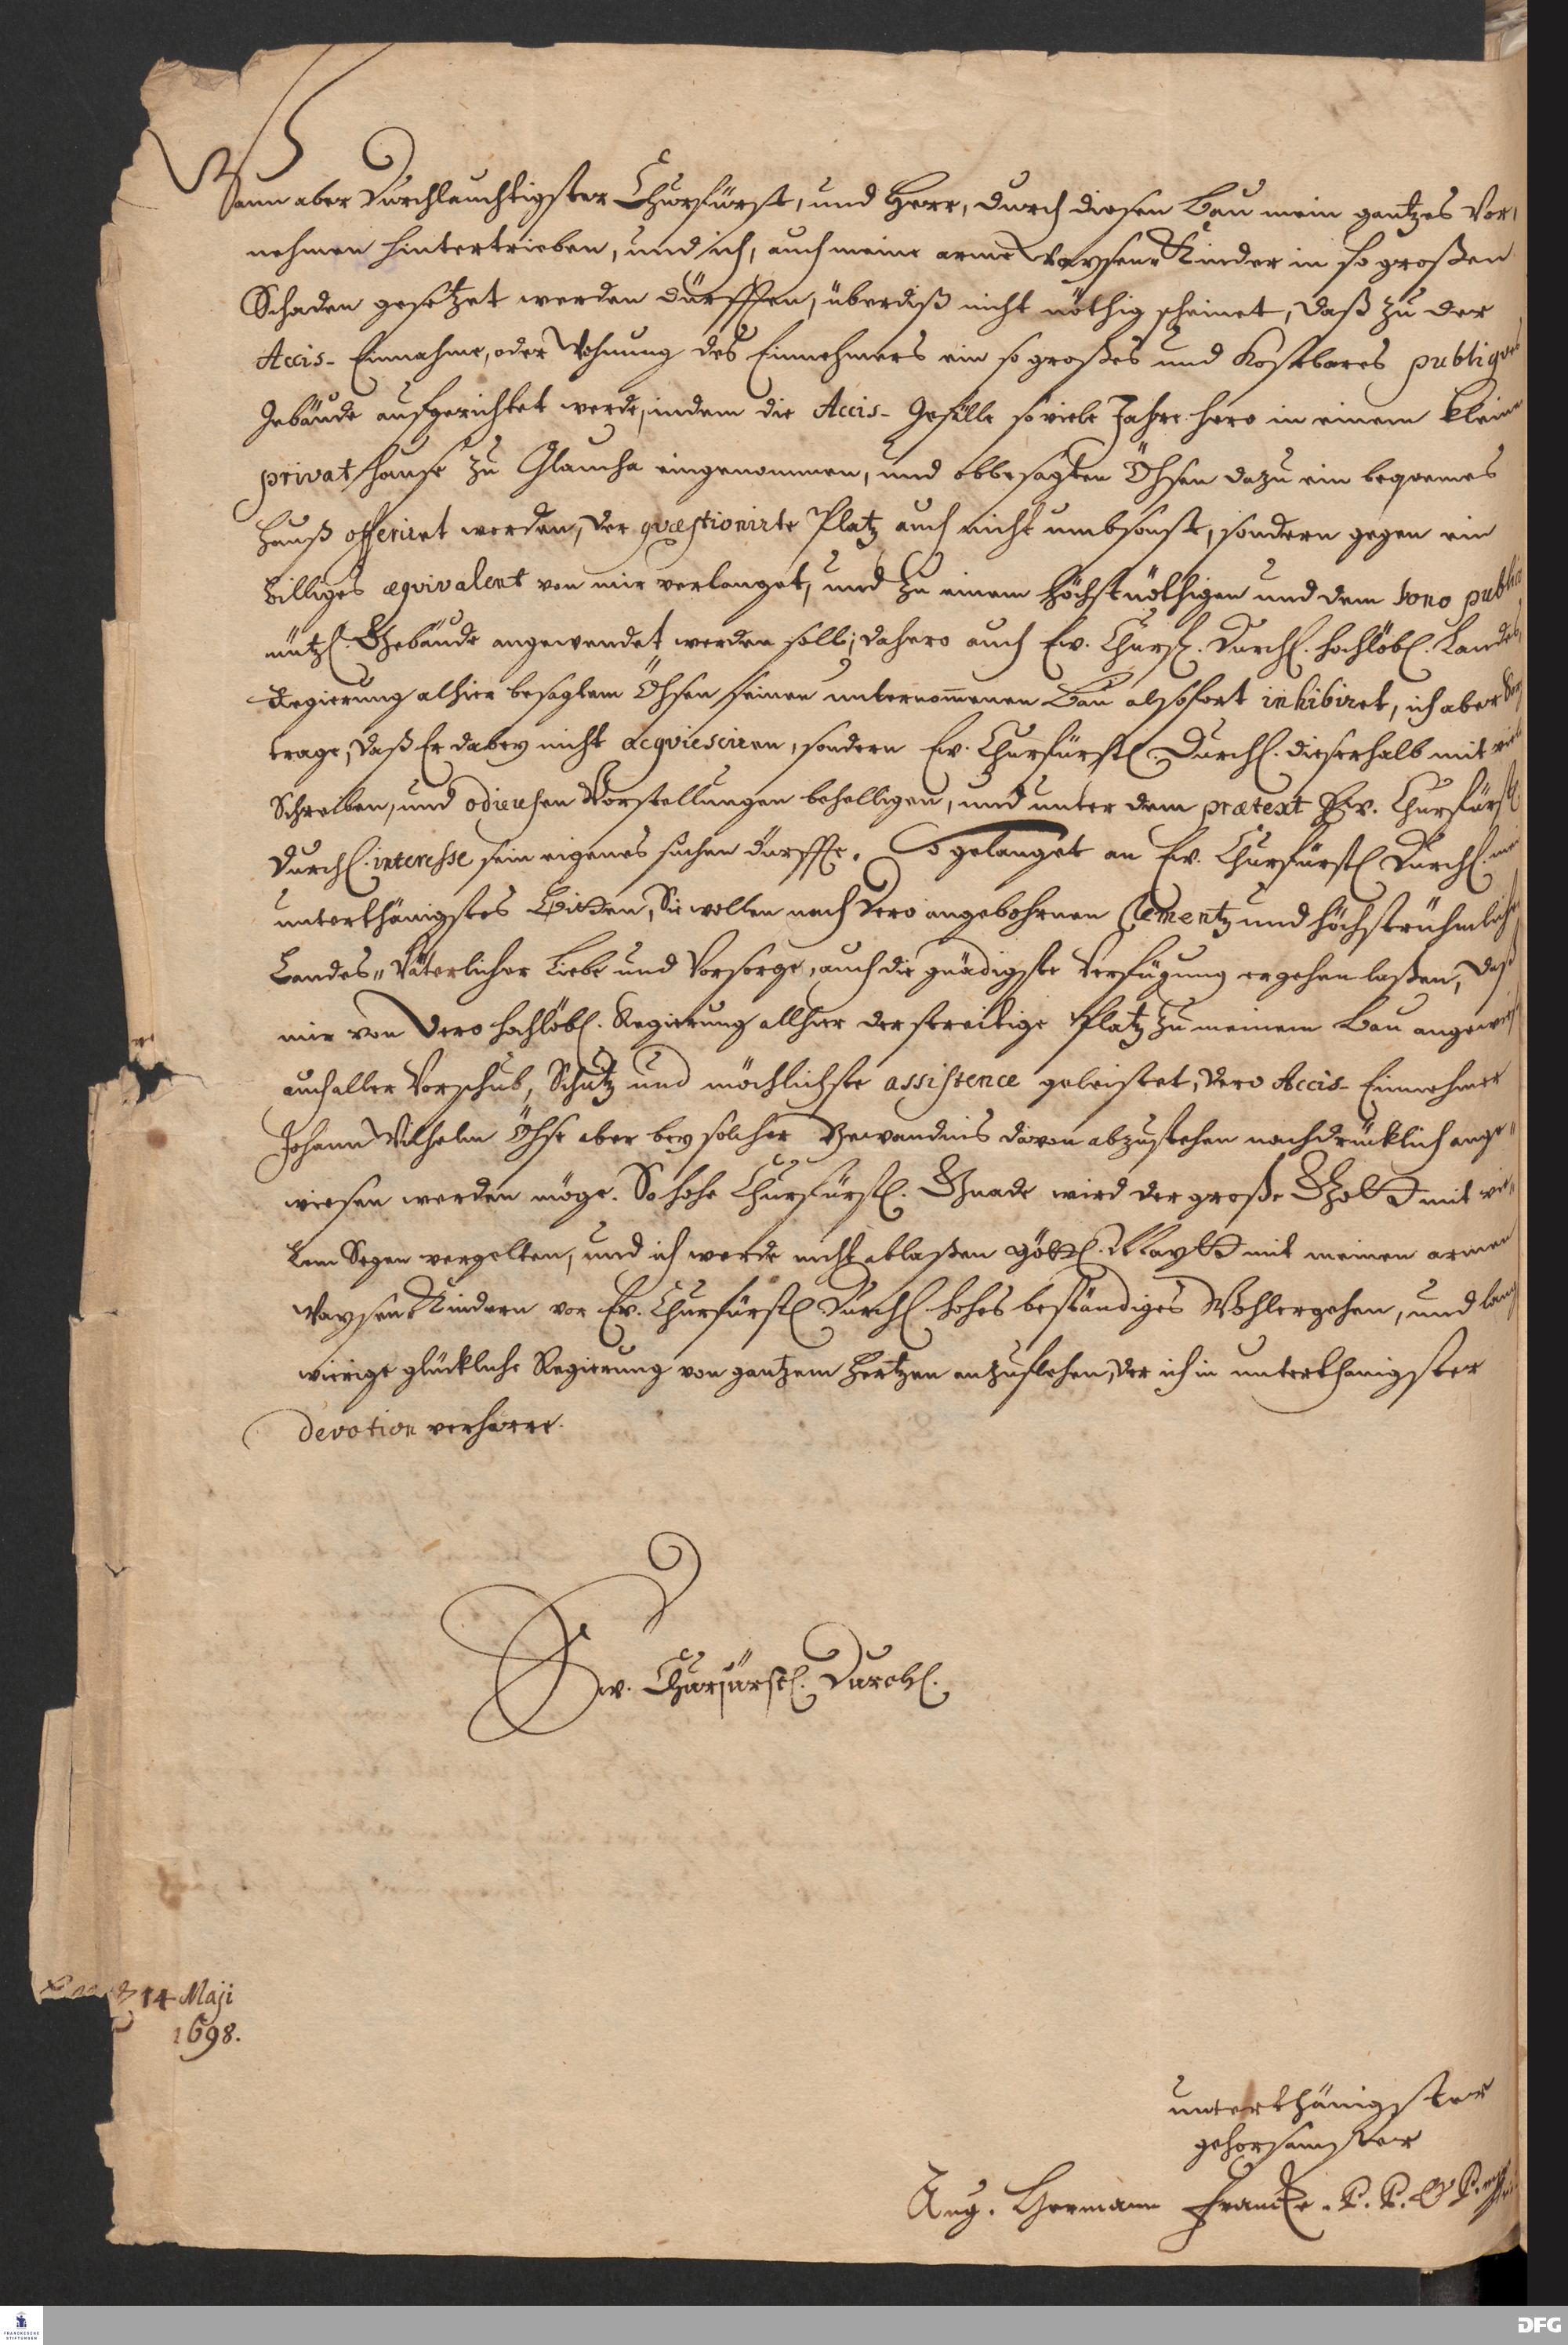 Wann aber Durchlauchtigster Churfürst, und Herr, durch diesen Bau mein gantzes Vor,
nehmen hintertrieben, und ich, auch meine arme Waysen Kinder in so großen
Schaden gesetzet werden dürfften, überdiß nicht nöthig scheinet, daß zu der
Accis- Einnahme, oder Wohnung des Einnehmers ein so großes und kostbares publiques
Gebäude aufgerichtet werde, indem die Accis- Gefälle so viele Jahre hero in einem kleinen
privat hause zu Glaucha eingenommen, und obbesagten Öhsen dazu ein beqvemes
Hauß offeriret worden, der qvæstionirte Platz auch nicht umbsonst, sondern gegen ein
billiges æqvivalent von mir verlanget, und zu einem höchstnöthigen und dem bono publico
nützl. Gebäude angewendet werden soll; dahero auch Ew. Churf. Durchl. hochlöbl. Landes,
Regierung alhier besagtem Öhsen seinen unternom̄enen Bau alsofort inhibiret, ich aber Sorg
trage, daß Er dabey nicht acqviesciren, sondern Ew. Churfürstl. Durchl. dieserhalb mit viel
Schreiben, und odieusen Vorstellungen behelligen, und unter dem prætext Ew. Churfürstl.
Durchl. interesse sein eigenes suchen dürffte. So gelanget an Ew. Churfürstl. Durchl. mein
unterthänigstes Bitten, Sie wollen nach Dero angebohrnen Clementz und höchstrühmlichen
Landes„ Väterlicher Liebe und Vorsorge, auch die gnädigste Verfügung ergehen laßen, daß
mir von Dero hochlöbl. Regierung allhier der streitige Platz zu meinem Bau angewiesen
auch aller Vorschub, Schutz und möchlichste assistence geleistet, Dero Accis- Einnehmer
Johann Wilhelm Öhse aber bey solcher Bewandnis davon abzustehen nachdrücklich ange„
wiesen werden möge. So hohe Churfürstl. Gnade wird der große Gott mit vie„
lem Segen vergelten, und ich werde nicht ablaßen göttl. Maytt mit meinen armen
Waysen Kindern vor Ew. Churfürstl. Durchl. hohes beständiges Wohlergehen, und lang
wierige glückliche Regierung von gantzem Hertzen anzuflehen, der ich in unterthänigster
devotion verharre.
Ew. Churfürstl. Durchl.
14 Maji
1698.
unterthänigster
gehorsamster
Aug. Hermann Francke. P. P. & P.
FRANCKESCHE
STIFTUNGEN
DFG